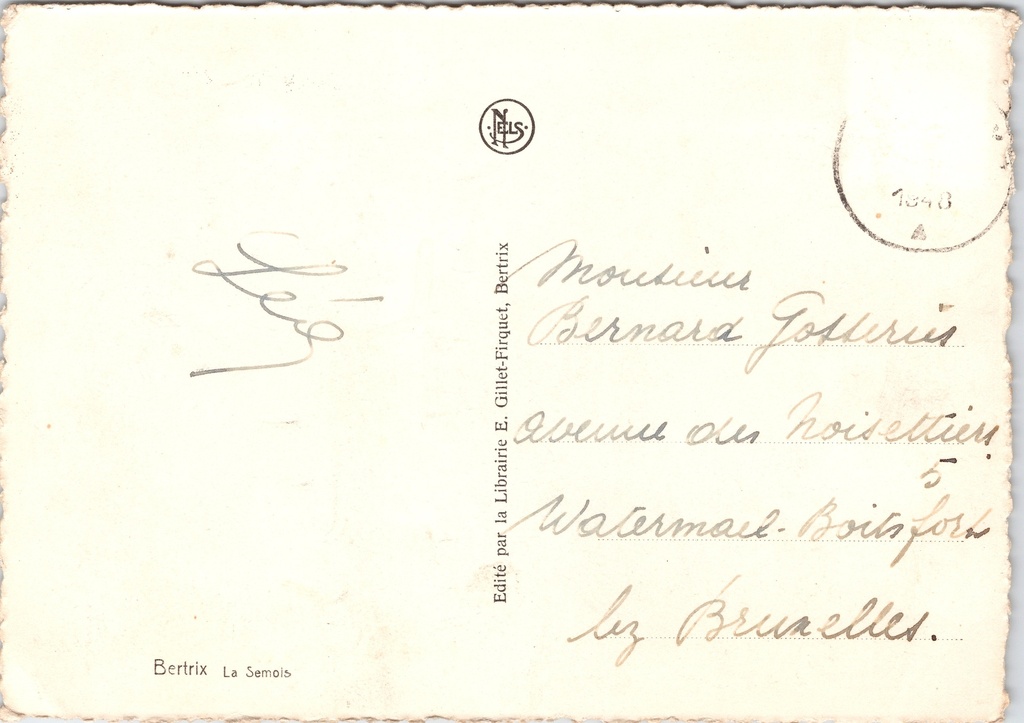 NELS
1948
A
Léo
Monsieur
Bernard Gosseries
Avenue des Noisettiers
5
Watermael-Boitsfort
lez Bruxelles.
Edité par la Librairie E. Gillet-Firquet, Bertrix
Bertrix La Semois